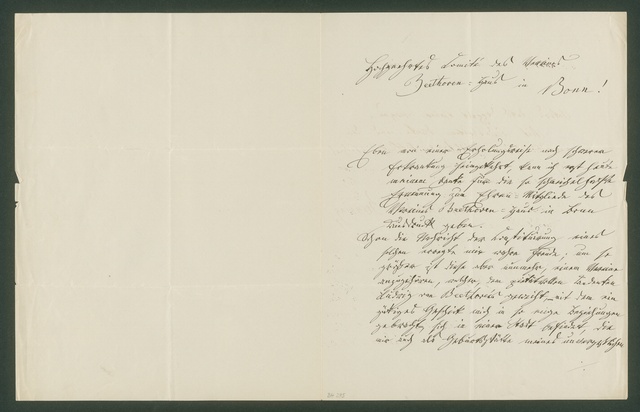 Hochgeehrtes Comité des Vereins
Beethoven-Haus in Bonn!
Eben von einer Erholungsreise nach schwerer
Erkrankung heimgekehrt, kann ich erst heute
meinem Danke für die so schmeichelhafte
Ernennung zum Ehren-Mitgliede des
Vereins Beethoven-Haus in Bonn
Ausdruck geben.
Schon die Nachricht der Constituirung eines
solchen erregte mir wahre Freude; um so
größer ist diese aber nunmehr, einem Vereine
anzugehören, welcher, dem Andenken
Ludwig van Beethovens geweiht, mit dem ein
gütiges Geschick mich in so enge Beziehungen
gebracht, sich in einer Stadt befindet, die
mir auch als Geburtsstätte meines unvergeßlichen